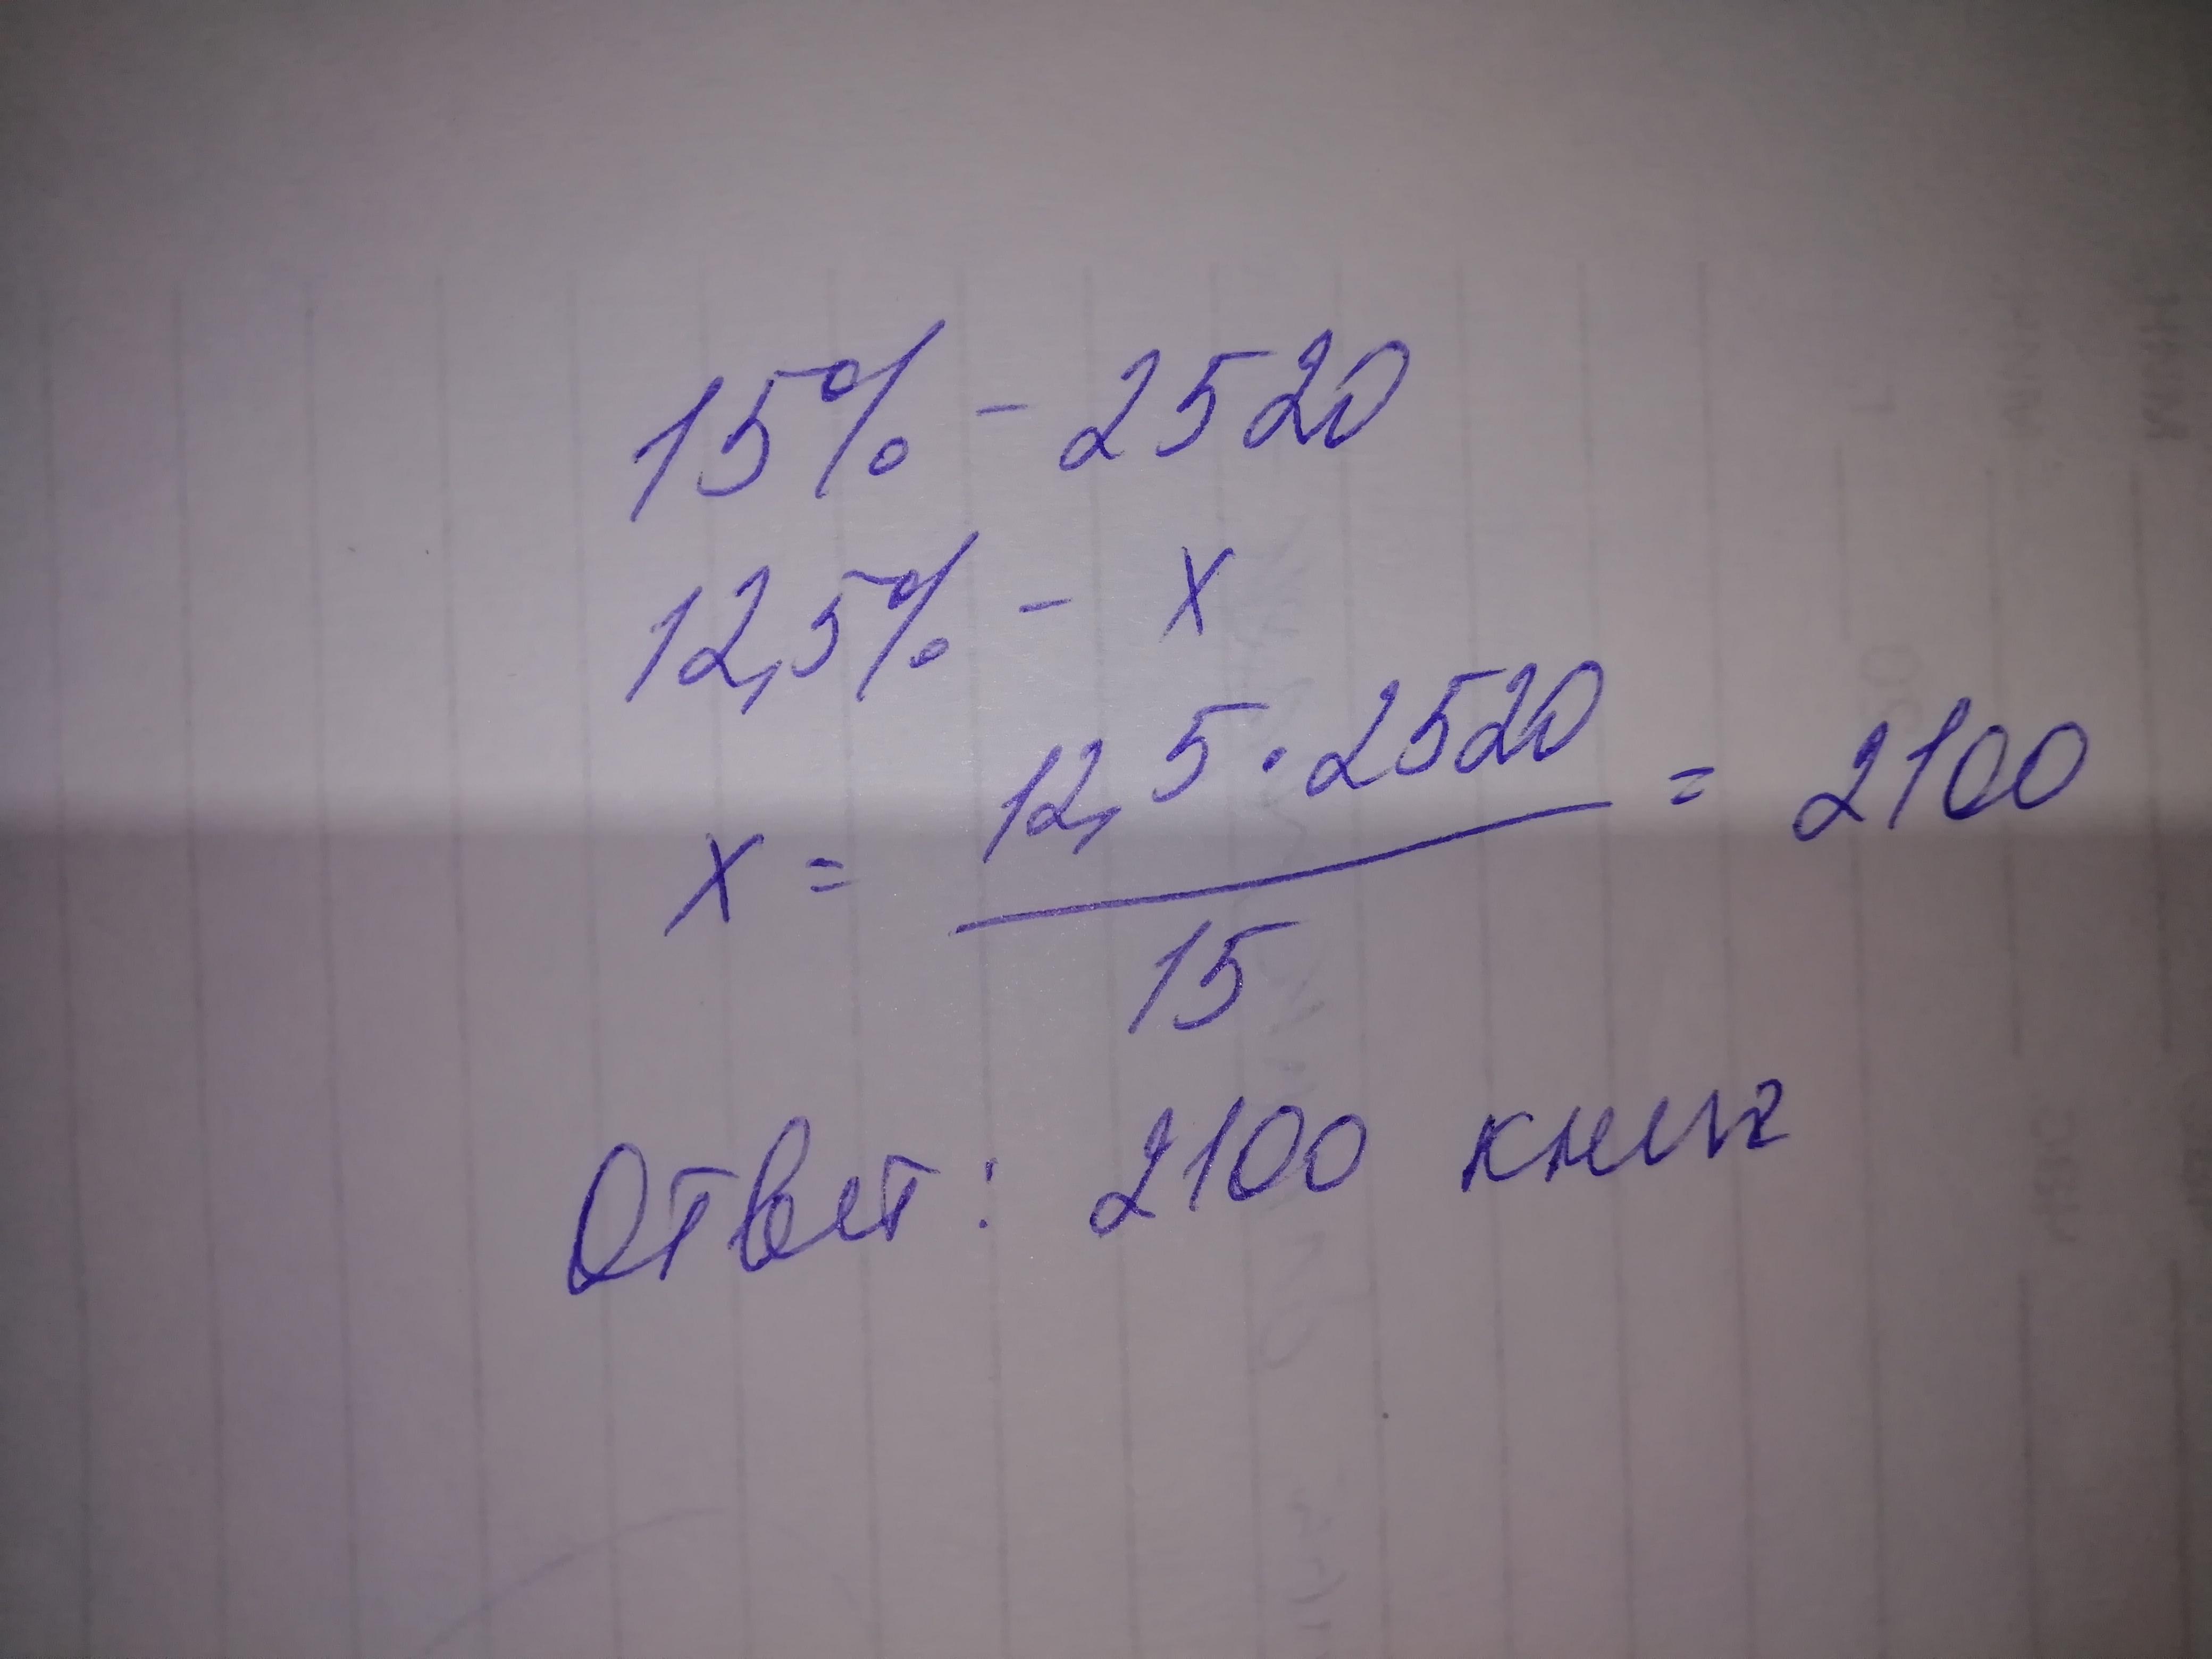 15% - 2520
12,5% - x
x = 12,5 · 2520 / 15 = 2100
Ответ: 2100 книг